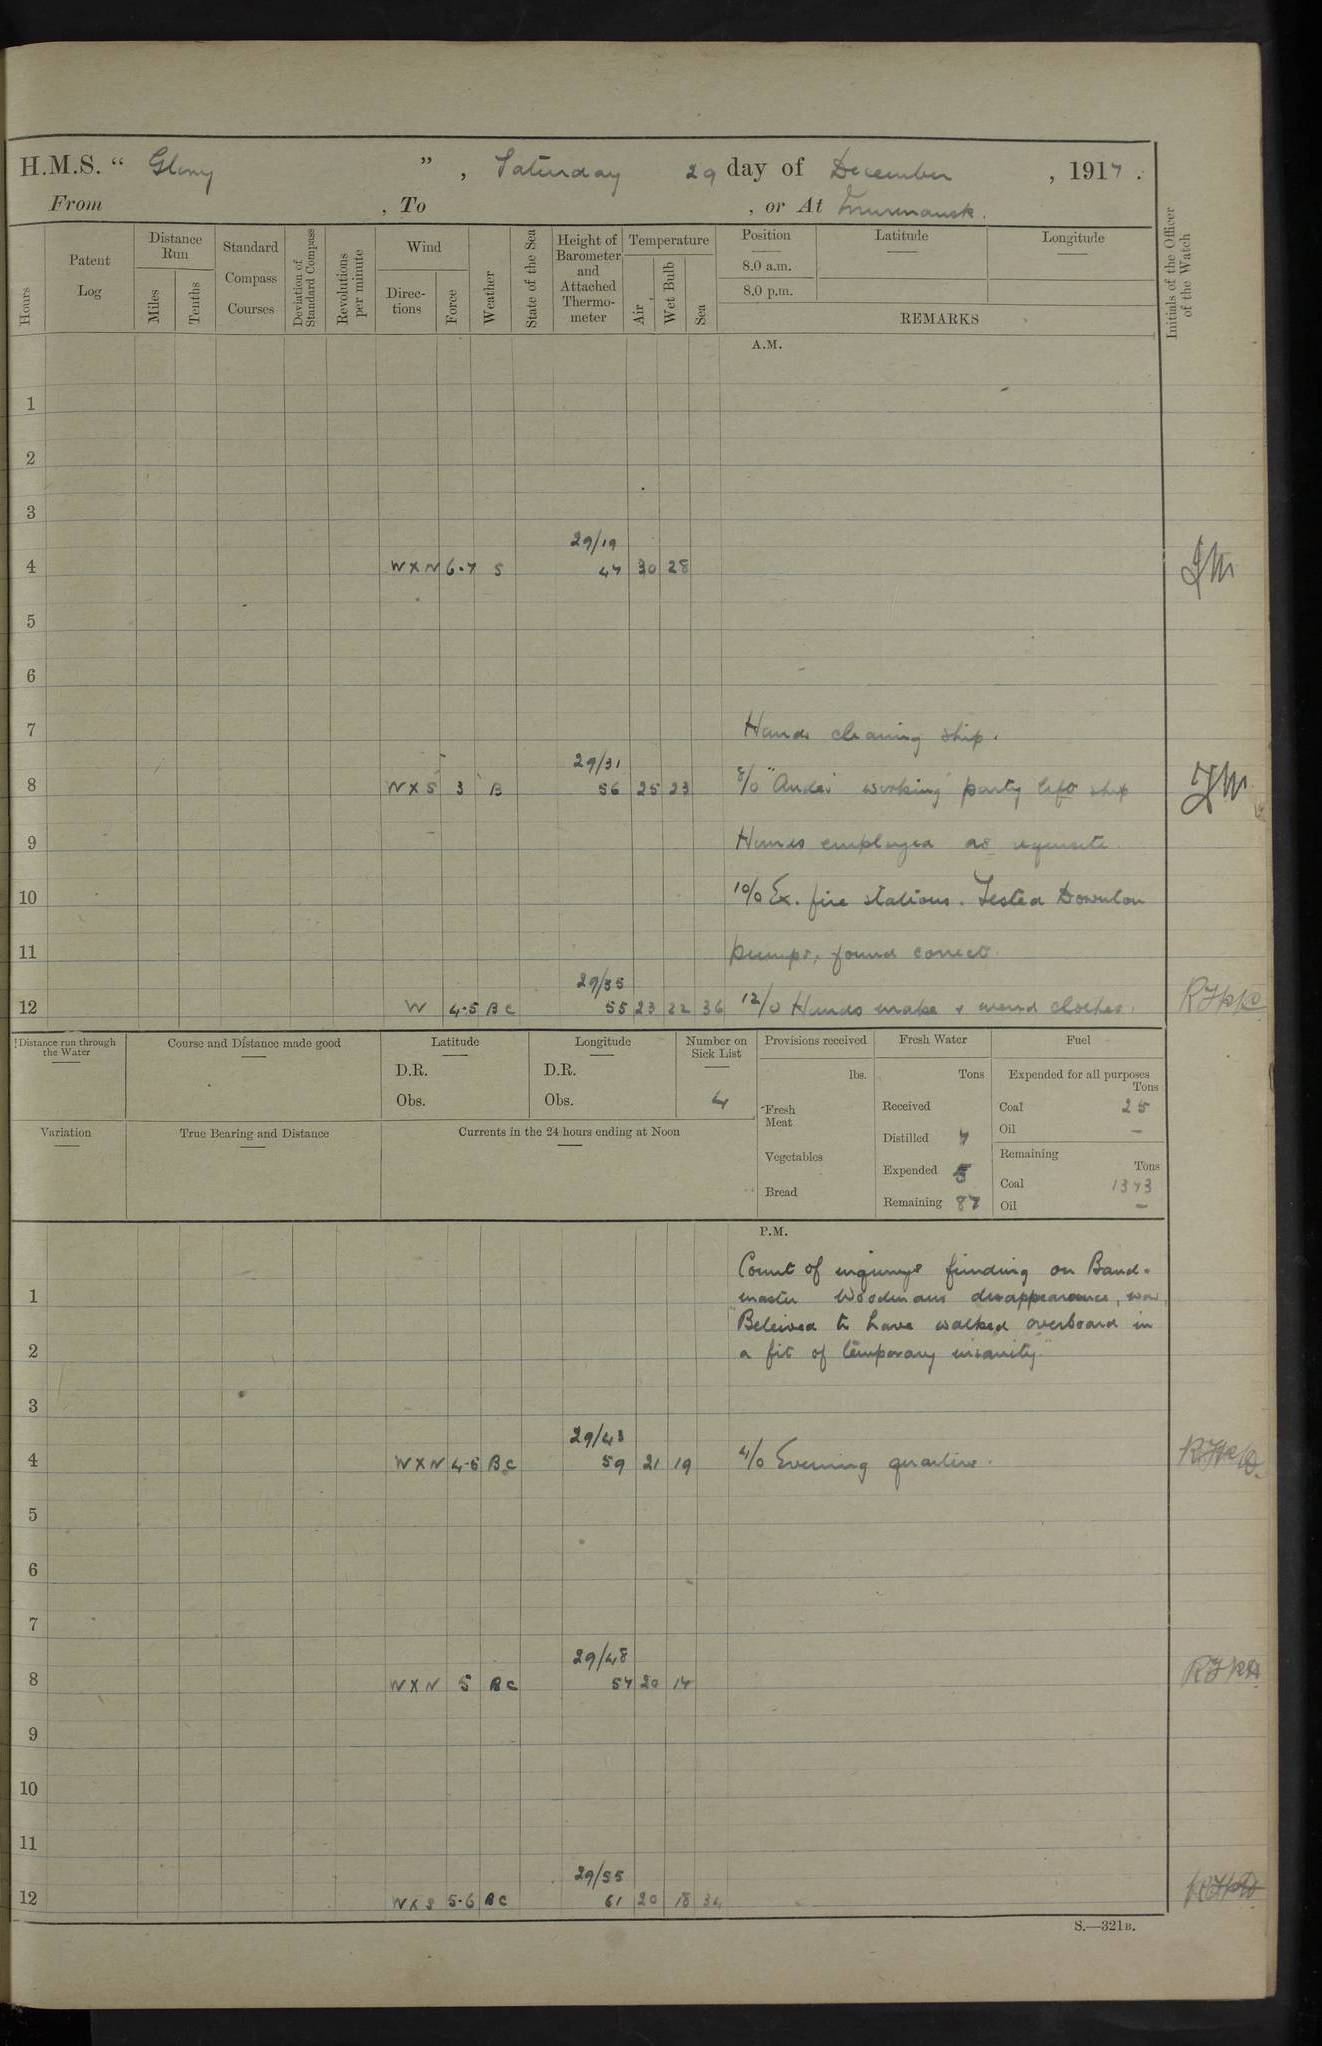 H.M.S. “ Glory ”, Saturday 29 day of December, 1917.
From , To , or At Murmansk.
Hours
Patent Log
Distance Run
Miles
Tenths
Standard Compass Courses
Deviation of Standard Compass
Revolutions per minute
Wind
Directions
Force
Weather
State of the Sea
Height of Barometer and Attached Thermometer
Temperature
Air
Wet Bulb
Sea
Position
8.0 a.m.
8.0 p.m.
Latitude
Longitude
REMARKS
Initials of the Officer of the Watch
A.M.
1
2
3
29/19
4 WXN 6.7 S 47 30 28
5
6
7 Hands cleaning ship.
29/31
8 WXS 3 B 56 25 23 8/0 "Andes" working party left ship
9 Hands employed as requisite.
10 10/0 Ex. fire stations. Tested Downton
11 pumps, found correct.
29/35
12 W 4.5 BC 55 23 22 36 12/0 Hands make & mend clothes.
Distance run through the Water
Course and Distance made good
Latitude
D.R.
Obs.
Longitude
D.R.
Obs.
Number on Sick List
4
Provisions received
lbs.
Fresh Meat
Vegetables
Bread
Fresh Water
Tons
Received
Distilled 7
Expended 5
Remaining 87
Fuel
Expended for all purposes
Tons
Coal 25
Oil —
Remaining
Tons
Coal 1373
Oil —
Variation
True Bearing and Distance
Currents in the 24 hours ending at Noon
P.M.
Court of inquirys finding on Band-
1 master Woodmans disappearance, was,
"Beleived to have walked overboard in
2 a fit of temporary insanity."
3
29/43
4 WXN 4.5 BC 59 21 19 4/0 Evening quarters.
5
6
7
29/48
8 WXN 5 BC 57 20 17
9
10
11
29/55
12 WXS 5.6 BC 61 20 18 34
S.—321B.